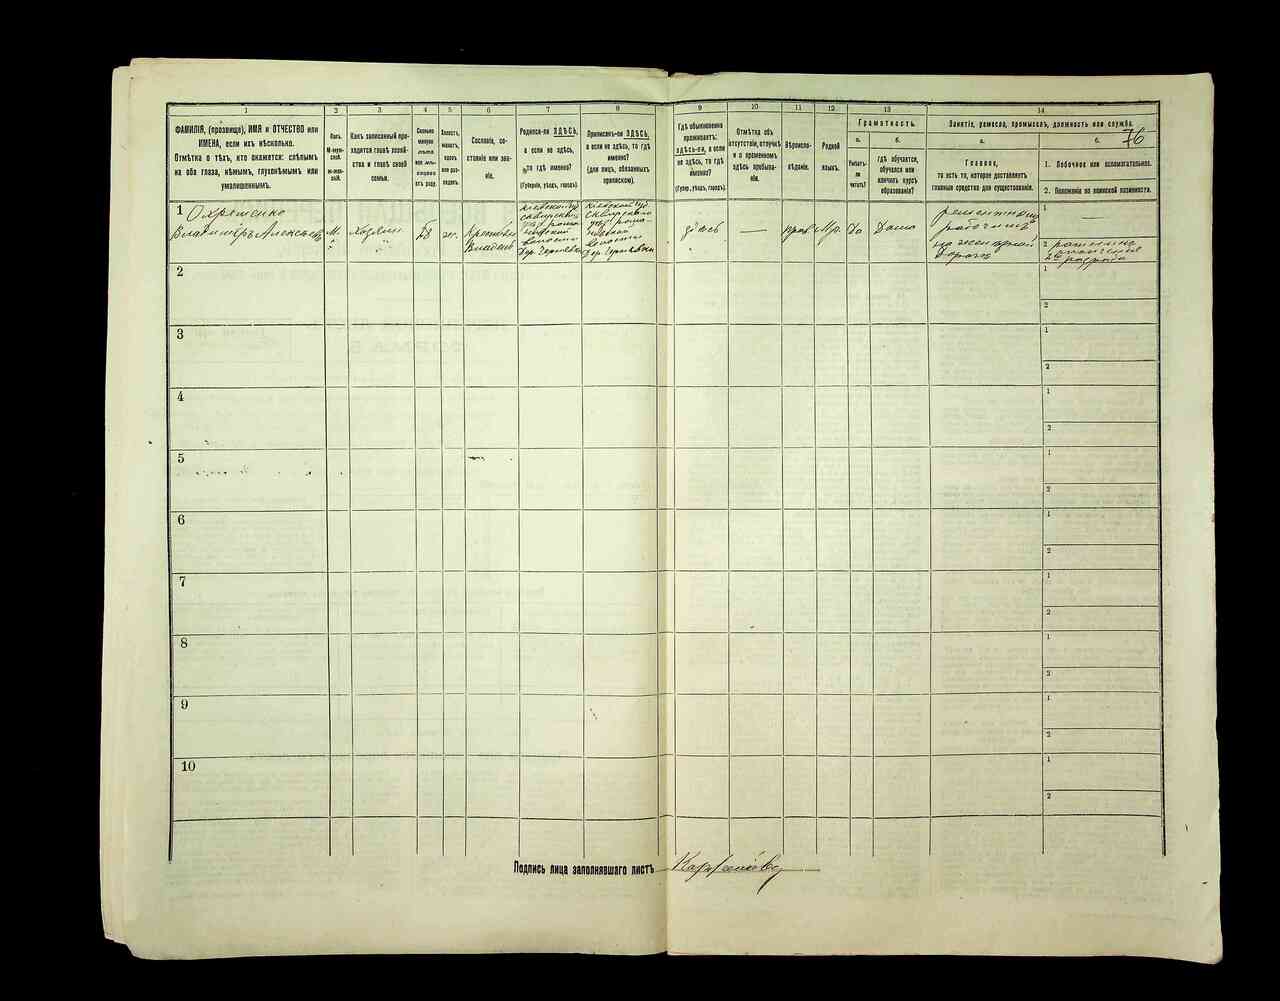 1
2
3
4
5
6
7
8
9
10
11
12
13
14
ФАМИЛІЯ, (прозвище), ИМЯ и ОТЧЕСТВО или
ИМЕНА, если ихъ нѣсколько.
Отмѣтка о тѣхъ, кто окажется: слѣпымъ
на оба глаза, нѣмымъ, глухонѣмымъ или
умалишеннымъ.
Полъ.
М-муж-
ской.
Ж-жен-
скій.
Какъ записанный при-
ходится главѣ хозяй-
ства и главѣ своей
семьи.
Сколько
минуло
лѣтъ
или мѣ-
сяцевъ
отъ роду.
Холостъ,
женатъ,
вдовъ
или раз-
веденъ.
Сословіе, со-
стояніе или зва-
ніе.
Родился-ли ЗДѢСЬ,
а если не здѣсь,
то гдѣ именно?
(Губернія, уѣздъ, городъ).
Приписанъ-ли ЗДѢСЬ,
а если не здѣсь, то гдѣ
именно?
(для лицъ, обязанныхъ
припискою).
Гдѣ обыкновенно
проживаетъ:
здѣсь-ли, а если
не здѣсь, то гдѣ
именно?
(Губер., уѣздъ, городъ).
Отмѣтка объ
отсутствіи, отлучкѣ
и о временномъ
здѣсь пребыва-
ніи.
Вѣроиспо-
вѣданіе.
Родной
языкъ.
Грамотность.
а.
б.
Умѣетъ-
ли
читать?
гдѣ обучается,
обучался или
кончилъ курсъ
образованія?
Занятіе, ремесло, промыселъ, должность или служба.
76
а.
б.
Главное,
то есть то, которое доставляетъ
главныя средства для существованія.
1. Побочное или вспомогательное.
2. Положеніе по воинской повинности.
1
Охрѣменко
Владиміръ Алексѣевъ
М.
Хозяинъ
28
Кіевской губ
Сквирскаго
Кіевской губ
Сквирскаго
здѣсь
—
прав.
Мр.
Да
Дома
ремонтный
рабочимъ
на желѣзной
дорогѣ
1
—
2 ратникъ
ополченія
2го разряда
2
1
2
3
1
2
4
1
2
5
1
2
6
1
2
7
1
2
8
1
2
9
1
2
10
1
2
Подпись лица заполнявшаго листъ